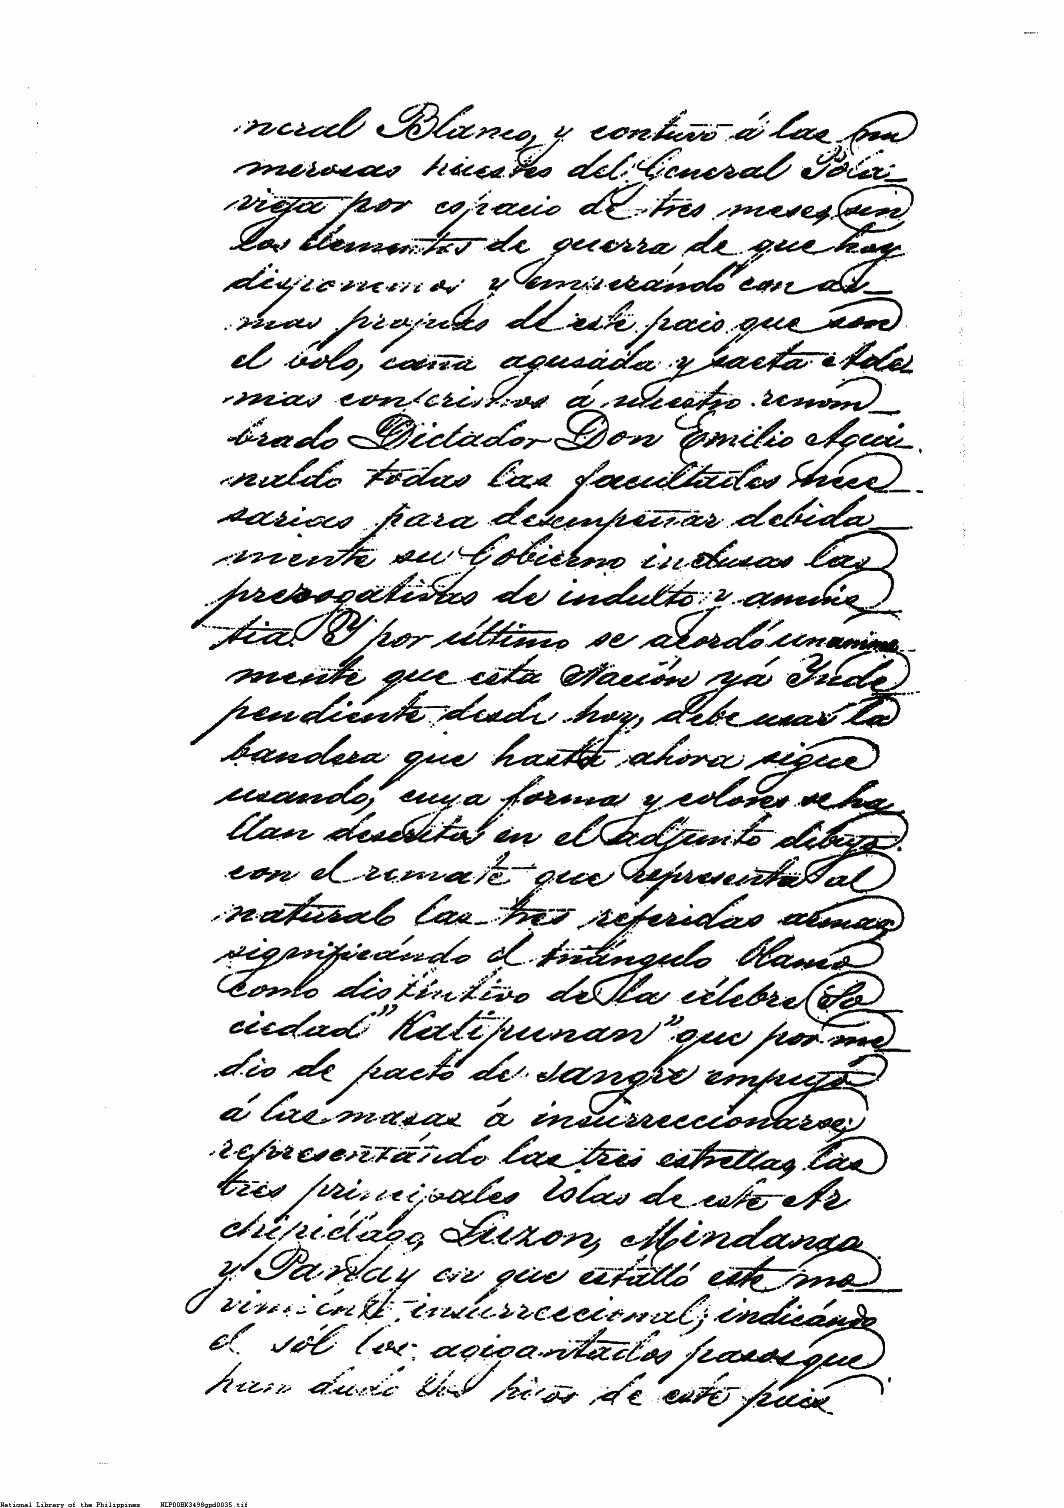 neral Blanco, y contuvo á las nu
merosas huestes del General Pola-
vieja por espacio de tres meses, sin
los elementos de guerra de que hoy
disponemos y empezándo con ar-
mas propias de este pais que son
el bolo, caña agusada y saeta Ade
mas conferimos á nuestro renom-
brado Dictador Don Emilio Agui
naldo todas las facultades nece-
sarias para desempeñar debida-
mente su Gobierno inclusas las
prerogativas de indulto y amnis
tia. Y por último se acordó unanime-
mente que esta Nación yá Inde
pendiente desde hoy, debe usar la
bandera que hasta ahora sigue
usando, cuya forma y colores se ha
llan descritos en el adjunto dibujo.
con el remate que representa al
natural las tres referidas armas
significándo el triángulo blanco
como distintivo de la célebre So-
ciedad "Katipunan" que por me-
dio de pacto de sangre empujó
á las masas á insurreccionarse;
representándo las tres estrellas, las
tres principales Islas de este Ar
chipiélago, Luzon, Mindanao
y Panay en que estalló este mo-
vimiénto insurreccional; indicándo
el sól los agigantados pasos que
han dado los hijos de este pais